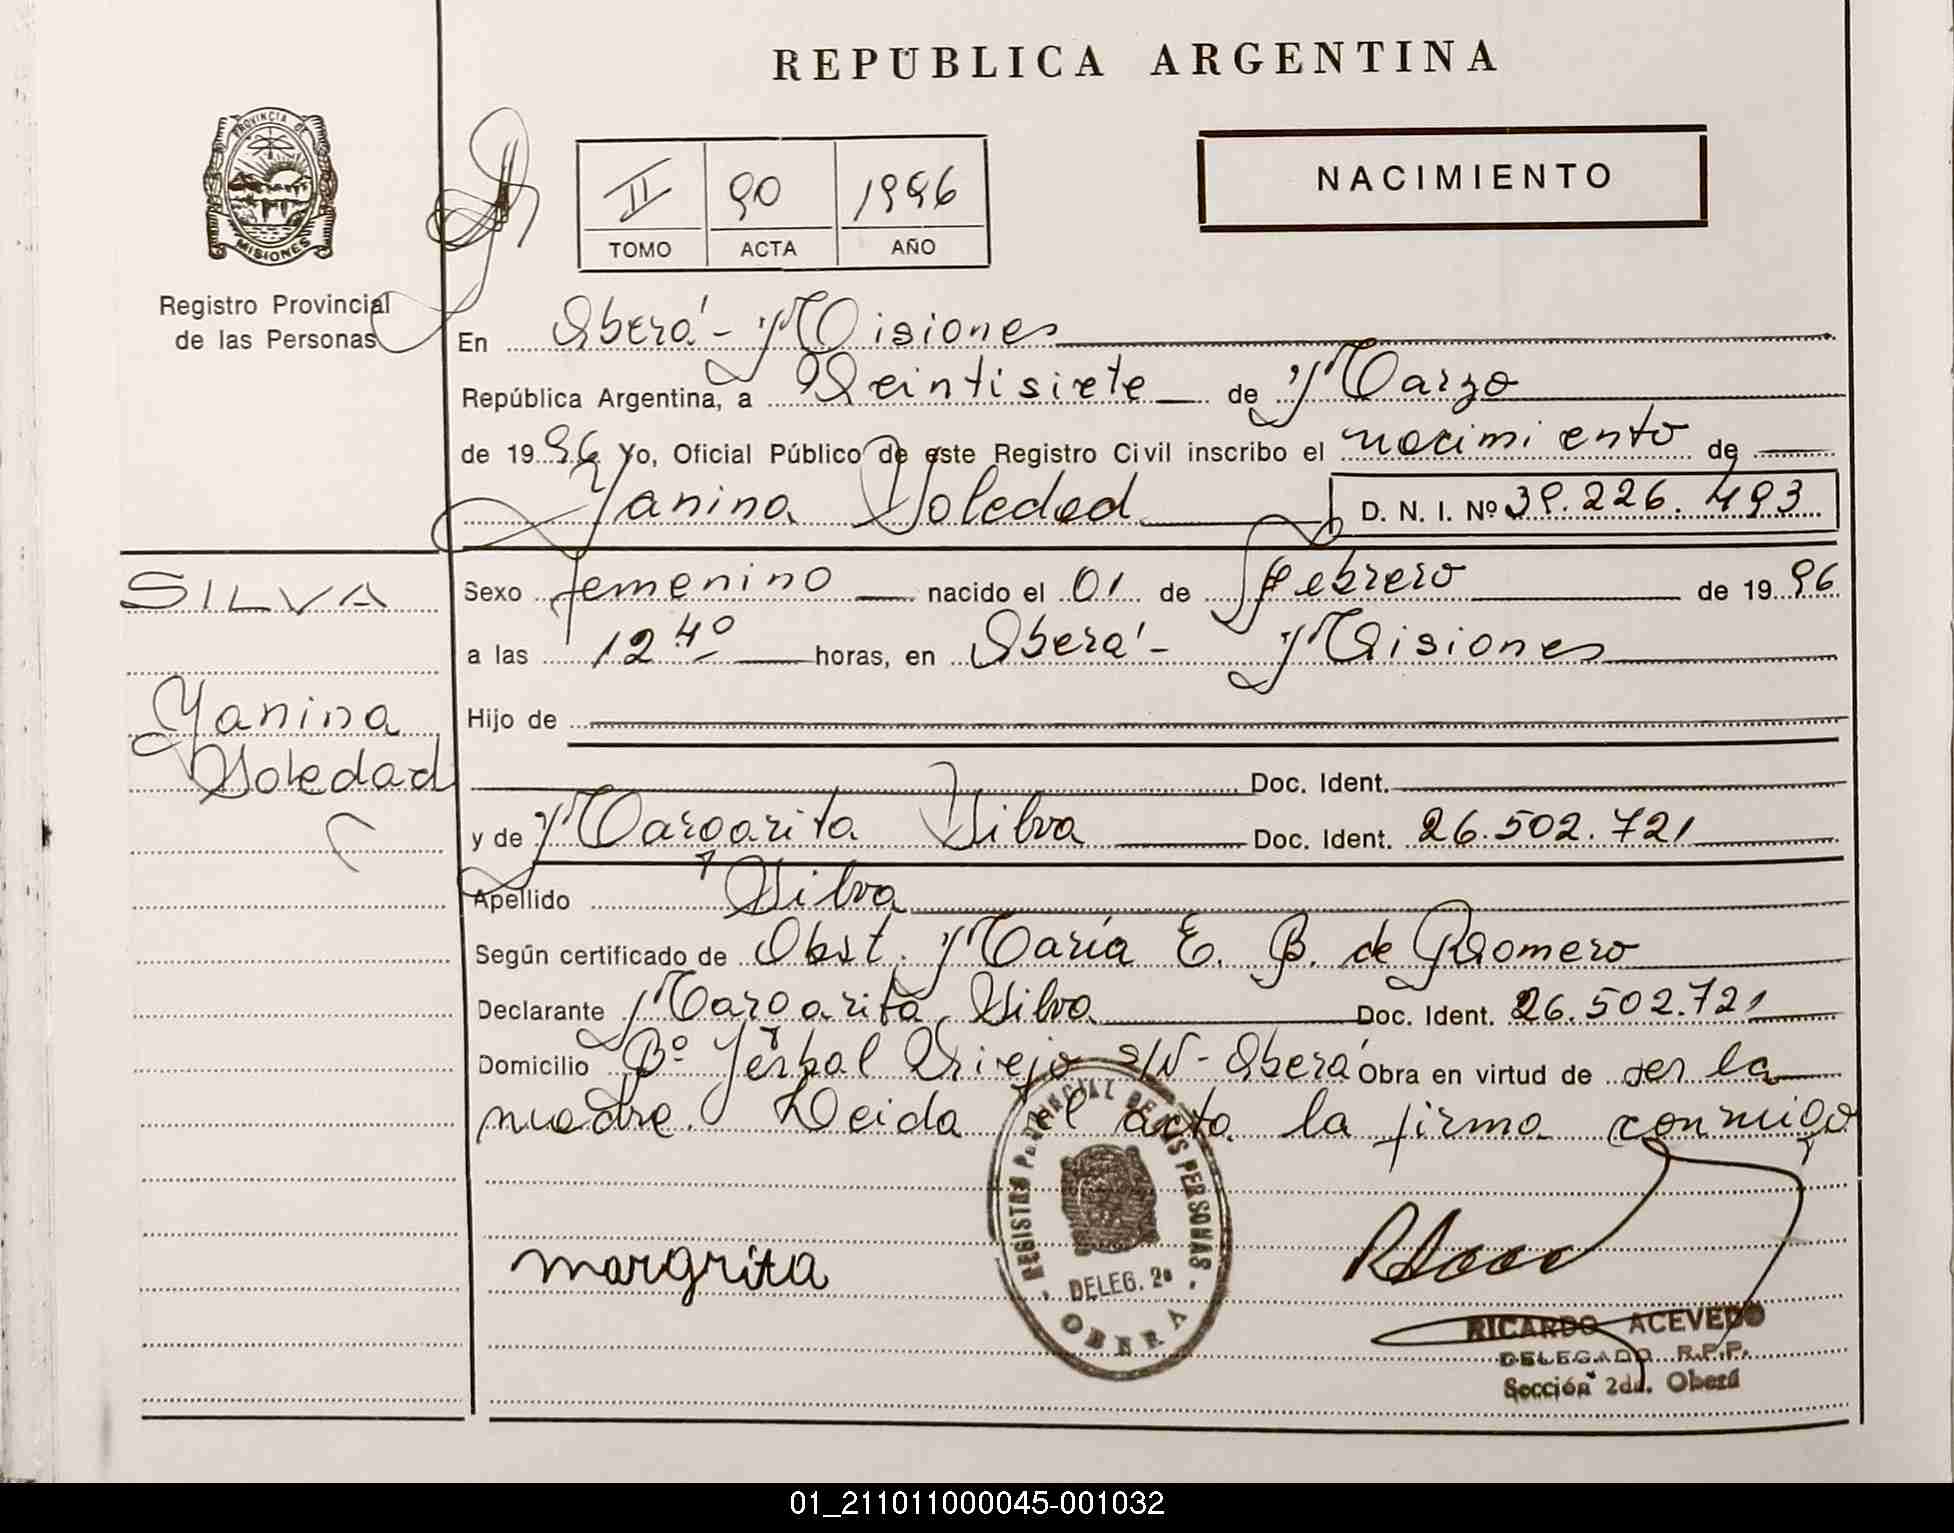 REPÚBLICA ARGENTINA
PROVINCIA DE MISIONES
Registro Provincial
de las Personas
II 90 1996
TOMO ACTA AÑO
NACIMIENTO
En Oberá - Misiones
República Argentina, a Veintisiete de Marzo
de 1996 Yo, Oficial Público de este Registro Civil inscribo el nacimiento de
Yanina Soledad D. N. I. Nº 39.226.493
SILVA
Yanina
Soledad
Sexo femenino nacido el 01 de Febrero de 1996
a las 12 40 horas, en Oberá - Misiones
Hijo de
Doc. Ident.
y de Margarita Silva Doc. Ident. 26.502.721
Apellido Silva
Según certificado de Obst. María E. B. de Romero
Declarante Margarita Silva Doc. Ident. 26.502.721
Domicilio Bº Yerbal Viejo s/N - Oberá Obra en virtud de ser la
madre. Leida el acta la firma conmigo
REGISTRO PROVINCIAL DE LAS PERSONAS
DELEG. 2ª
OBERA
margrita
RICARDO ACEVEDO
DELEGADO R.P.P.
Sección 2da. Oberá
01_211011000045-001032